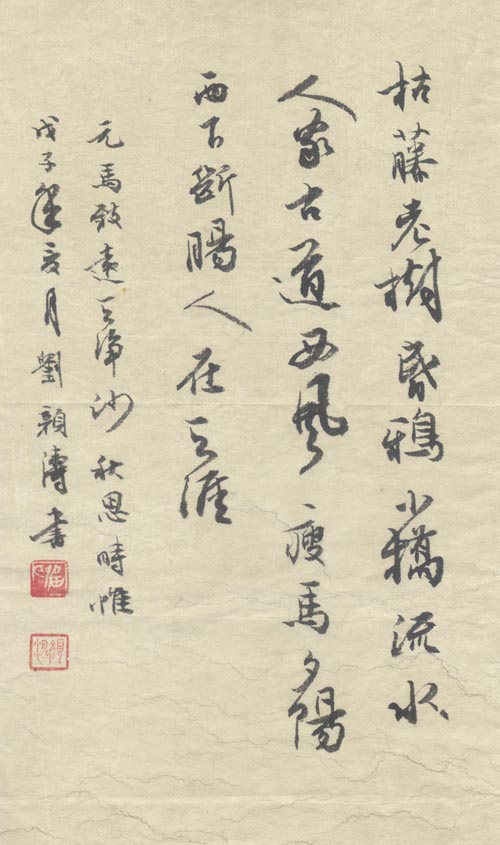 枯藤老樹昏鴉小橋流水
人家古道西風瘦馬夕陽
西下斷腸人在天涯
元馬致遠天淨沙秋思時惟
戊子年亥月劉穎濤書